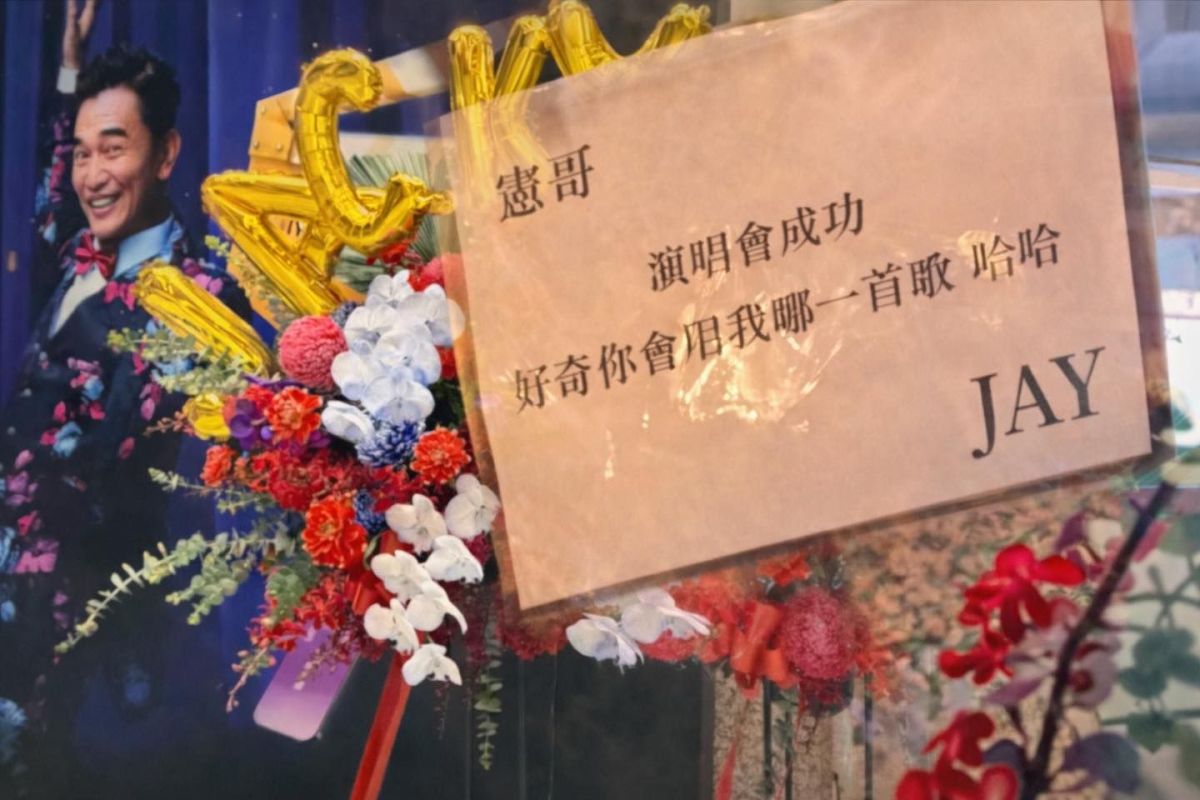 憲哥
演唱會成功
好奇你會唱我哪一首歌 哈哈
JAY